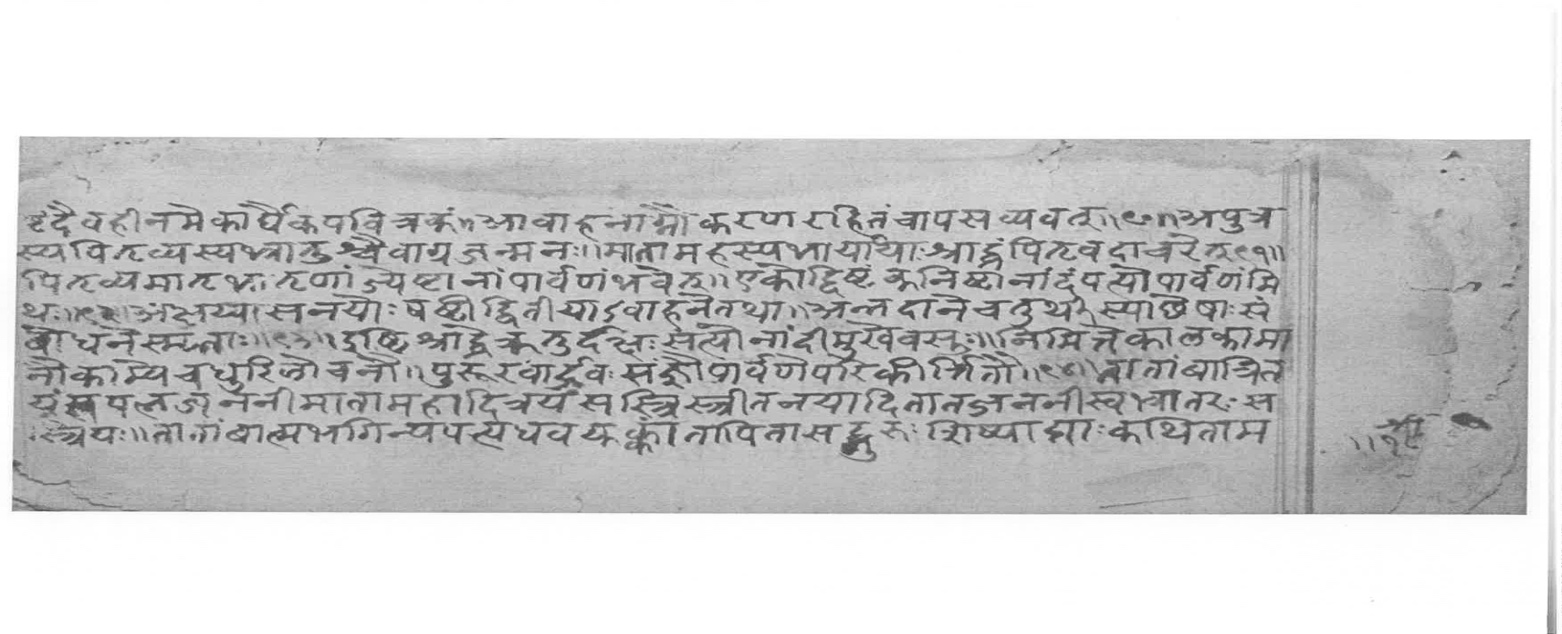 ष्टं दैवहीनमेकार्घ्यैकपवित्रकं॥ आवाहनाग्नौकरणरहितं चापसव्यवत्॥९०॥ अपुत्र
स्य पितृव्यस्य भ्रातुश्चैवाग्रजन्मनः॥ मातामहस्य भार्यायाः श्राद्धं पितृवदाचरेत्९१॥
पितृव्यमातृभ्रातृणां ज्येष्टानां पार्वणं भवेत्॥ एकोद्दिष्टं कनिष्टानां दंपत्योः पार्वणं मि
थः॥९२॥ अक्षय्यासनयोः षष्टी द्वितीयाऽवाहने तथा॥ अन्नदाने चतुर्थी स्याछेषाः सं
बोधने स्मृताः॥९३॥ इष्टिश्राद्धे क्रतुर्दक्षः सत्यो नांदीमुखे वसुः॥ नैमित्तिके कालकामा
नौ काम्ये च धुरिलोचनौ॥ पुरूरवार्द्रवः संज्ञौ पार्वणे परिकीर्तितौ॥९४॥ तातांबात्रित
यं सपत्नजननी मातामहादित्रयं सस्त्रि स्त्रीतनयादि तातजननीस्वभ्रातरः स
स्त्रियः॥ तातांबात्मभगिन्यपत्यधवयुक् जायापिता सद्गुरुः शिष्याप्ताः कथिता म